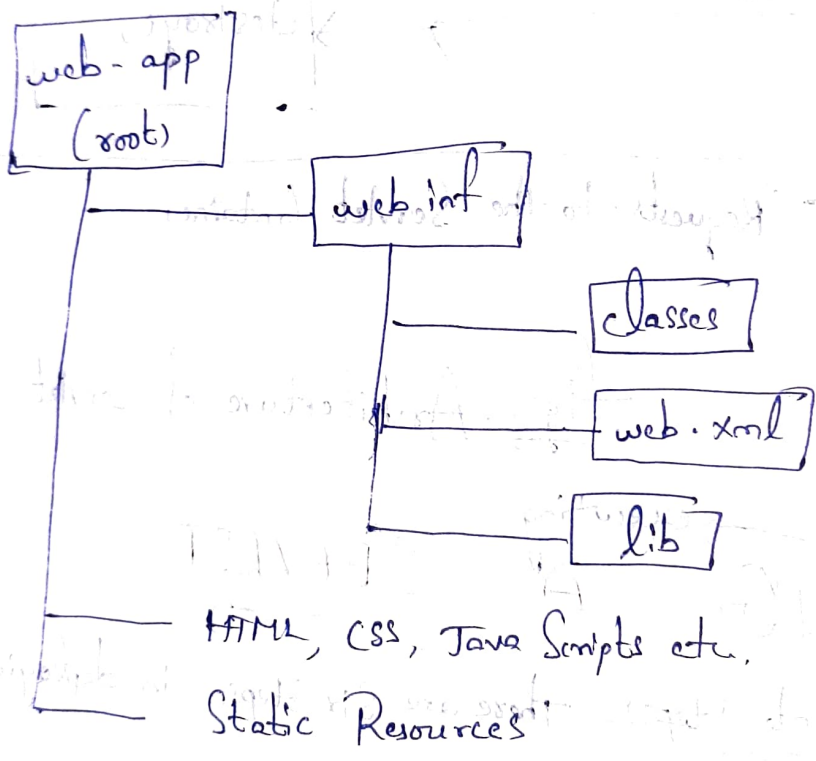 web-app
(root)
web.inf
classes
web.xml
lib
HTML, CSS, Java Scripts etc.
Static Resources